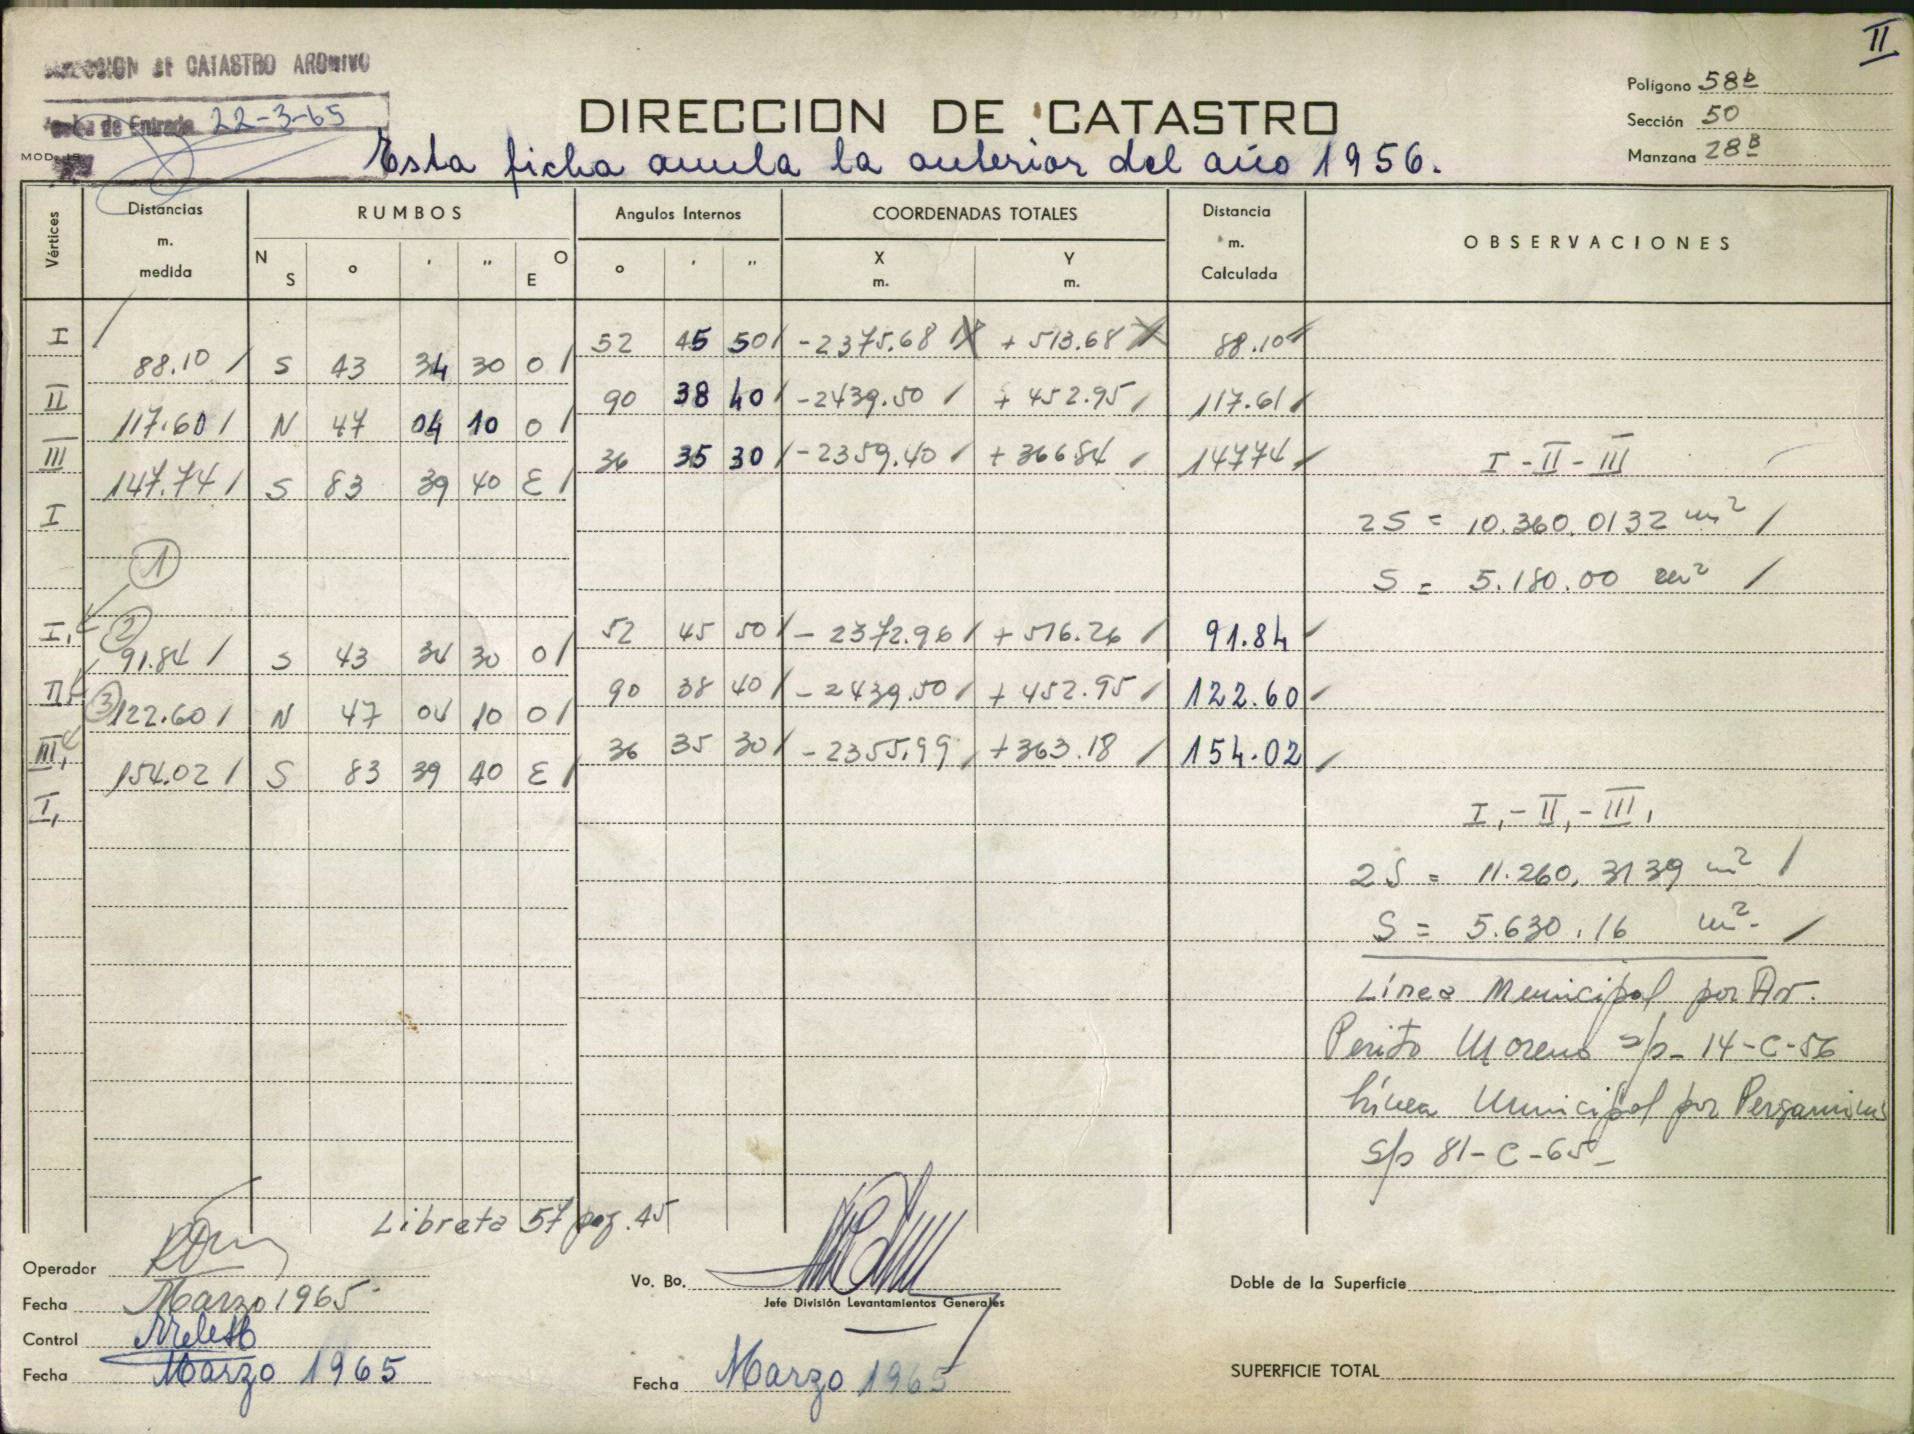 II
DIRECCION DE CATASTRO ARCHIVO
Fecha de Entrada 22-3-65
MOD. 15
DIRECCION DE CATASTRO
Esta ficha anula la anterior del año 1956.
Polígono 58b
Sección 50
Manzana 28B
Vértices Distancias m. medida RUMBOS Angulos Internos COORDENADAS TOTALES Distancia m. Calculada OBSERVACIONES
N S ° ' " O E ° ' " X m. Y m.
I 52 45 50 -2375.68 + 513.68 88.10
88.10 S 43 34 30 O
II 90 38 40 -2439.50 + 452.95 117.61
117.60 N 47 04 10 O
III 36 35 30 -2359.40 + 36684 14774
I - II - III
147.74 S 83 39 40 E
I
2S = 10.360.0132 m²
1
S = 5.180.00 m²
I, 52 45 50 - 2372.96 + 516.26 91.84
2
91.84 S 43 34 30 O
II, 90 38 40 - 2439.50 + 452.95 122.60
3
122.60 N 47 04 10 O
III, 36 35 30 - 2355.99 +363.18 154.02
154.02 S 83 39 40 E
I,
I, - II, - III,
2S = 11.260,3139 m²
S = 5.630.16 m²
Línea Municipal por Av.
Perito Moreno s/p- 14-C-56
Línea Municipal por
s/p 81-C-65-
Libreta 57 pag. 45
Operador
Fecha Marzo 1965
Control
Fecha Marzo 1965
Vo. Bo.
Jefe División Levantamientos Generales
Fecha Marzo 1965
Doble de la Superficie
SUPERFICIE TOTAL